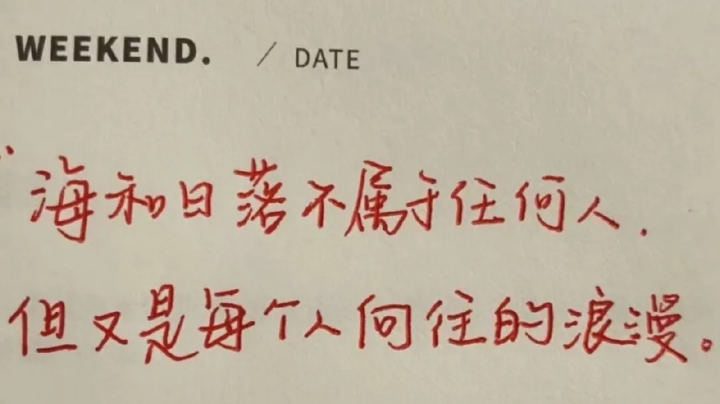 WEEKEND. / DATE
海和日落不属于任何人.
但又是每个人向往的浪漫。